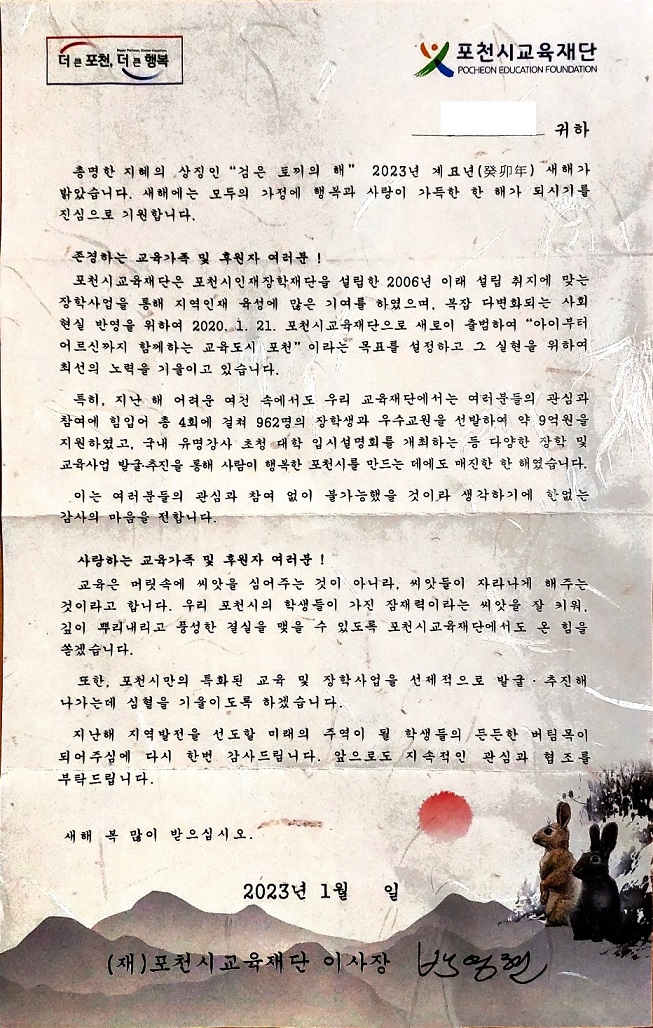 더 큰 포천, 더 큰 행복
포천시교육재단
POCHEON EDUCATION FOUNDATION
귀하
총명한 지혜의 상징인 “검은 토끼의 해” 2023년 계묘년(癸卯年) 새해가
밝았습니다. 새해에는 모두의 가정에 행복과 사랑이 가득한 한 해가 되시기를
진심으로 기원합니다.
존경하는 교육가족 및 후원자 여러분 !
포천시교육재단은 포천시인재장학재단을 설립한 2006년 이래 설립 취지에 맞는
장학사업을 통해 지역인재 육성에 많은 기여를 하였으며, 복잡 다변화되는 사회
현실 반영을 위하여 2020. 1. 21. 포천시교육재단으로 새로이 출범하여 “아이부터
어르신까지 함께하는 교육도시 포천” 이라는 목표를 설정하고 그 실현을 위하여
최선의 노력을 기울이고 있습니다.
특히, 지난 해 어려운 여건 속에서도 우리 교육재단에서는 여러분들의 관심과
참여에 힘입어 총 4회에 걸쳐 962명의 장학생과 우수교원을 선발하여 약 9억원을
지원하였고, 국내 유명강사 초청 대학 입시설명회를 개최하는 등 다양한 장학 및
교육사업 발굴·추진을 통해 사람이 행복한 포천시를 만드는 데에도 매진한 한 해였습니다.
이는 여러분들의 관심과 참여 없이 불가능했을 것이라 생각하기에 한없는
감사의 마음을 전합니다.
사랑하는 교육가족 및 후원자 여러분 !
교육은 머릿속에 씨앗을 심어주는 것이 아니라, 씨앗들이 자라나게 해주는
것이라고 합니다. 우리 포천시의 학생들이 가진 잠재력이라는 씨앗을 잘 키워,
깊이 뿌리내리고 풍성한 결실을 맺을 수 있도록 포천시교육재단에서도 온 힘을
쏟겠습니다.
또한, 포천시만의 특화된 교육 및 장학사업을 선제적으로 발굴 · 추진해
나가는데 심혈을 기울이도록 하겠습니다.
지난해 지역발전을 선도할 미래의 주역이 될 학생들의 든든한 버팀목이
되어주심에 다시 한번 감사드립니다. 앞으로도 지속적인 관심과 협조를
부탁드립니다.
새해 복 많이 받으십시오.
2023년 1월 일
(재)포천시교육재단 이사장 박영현